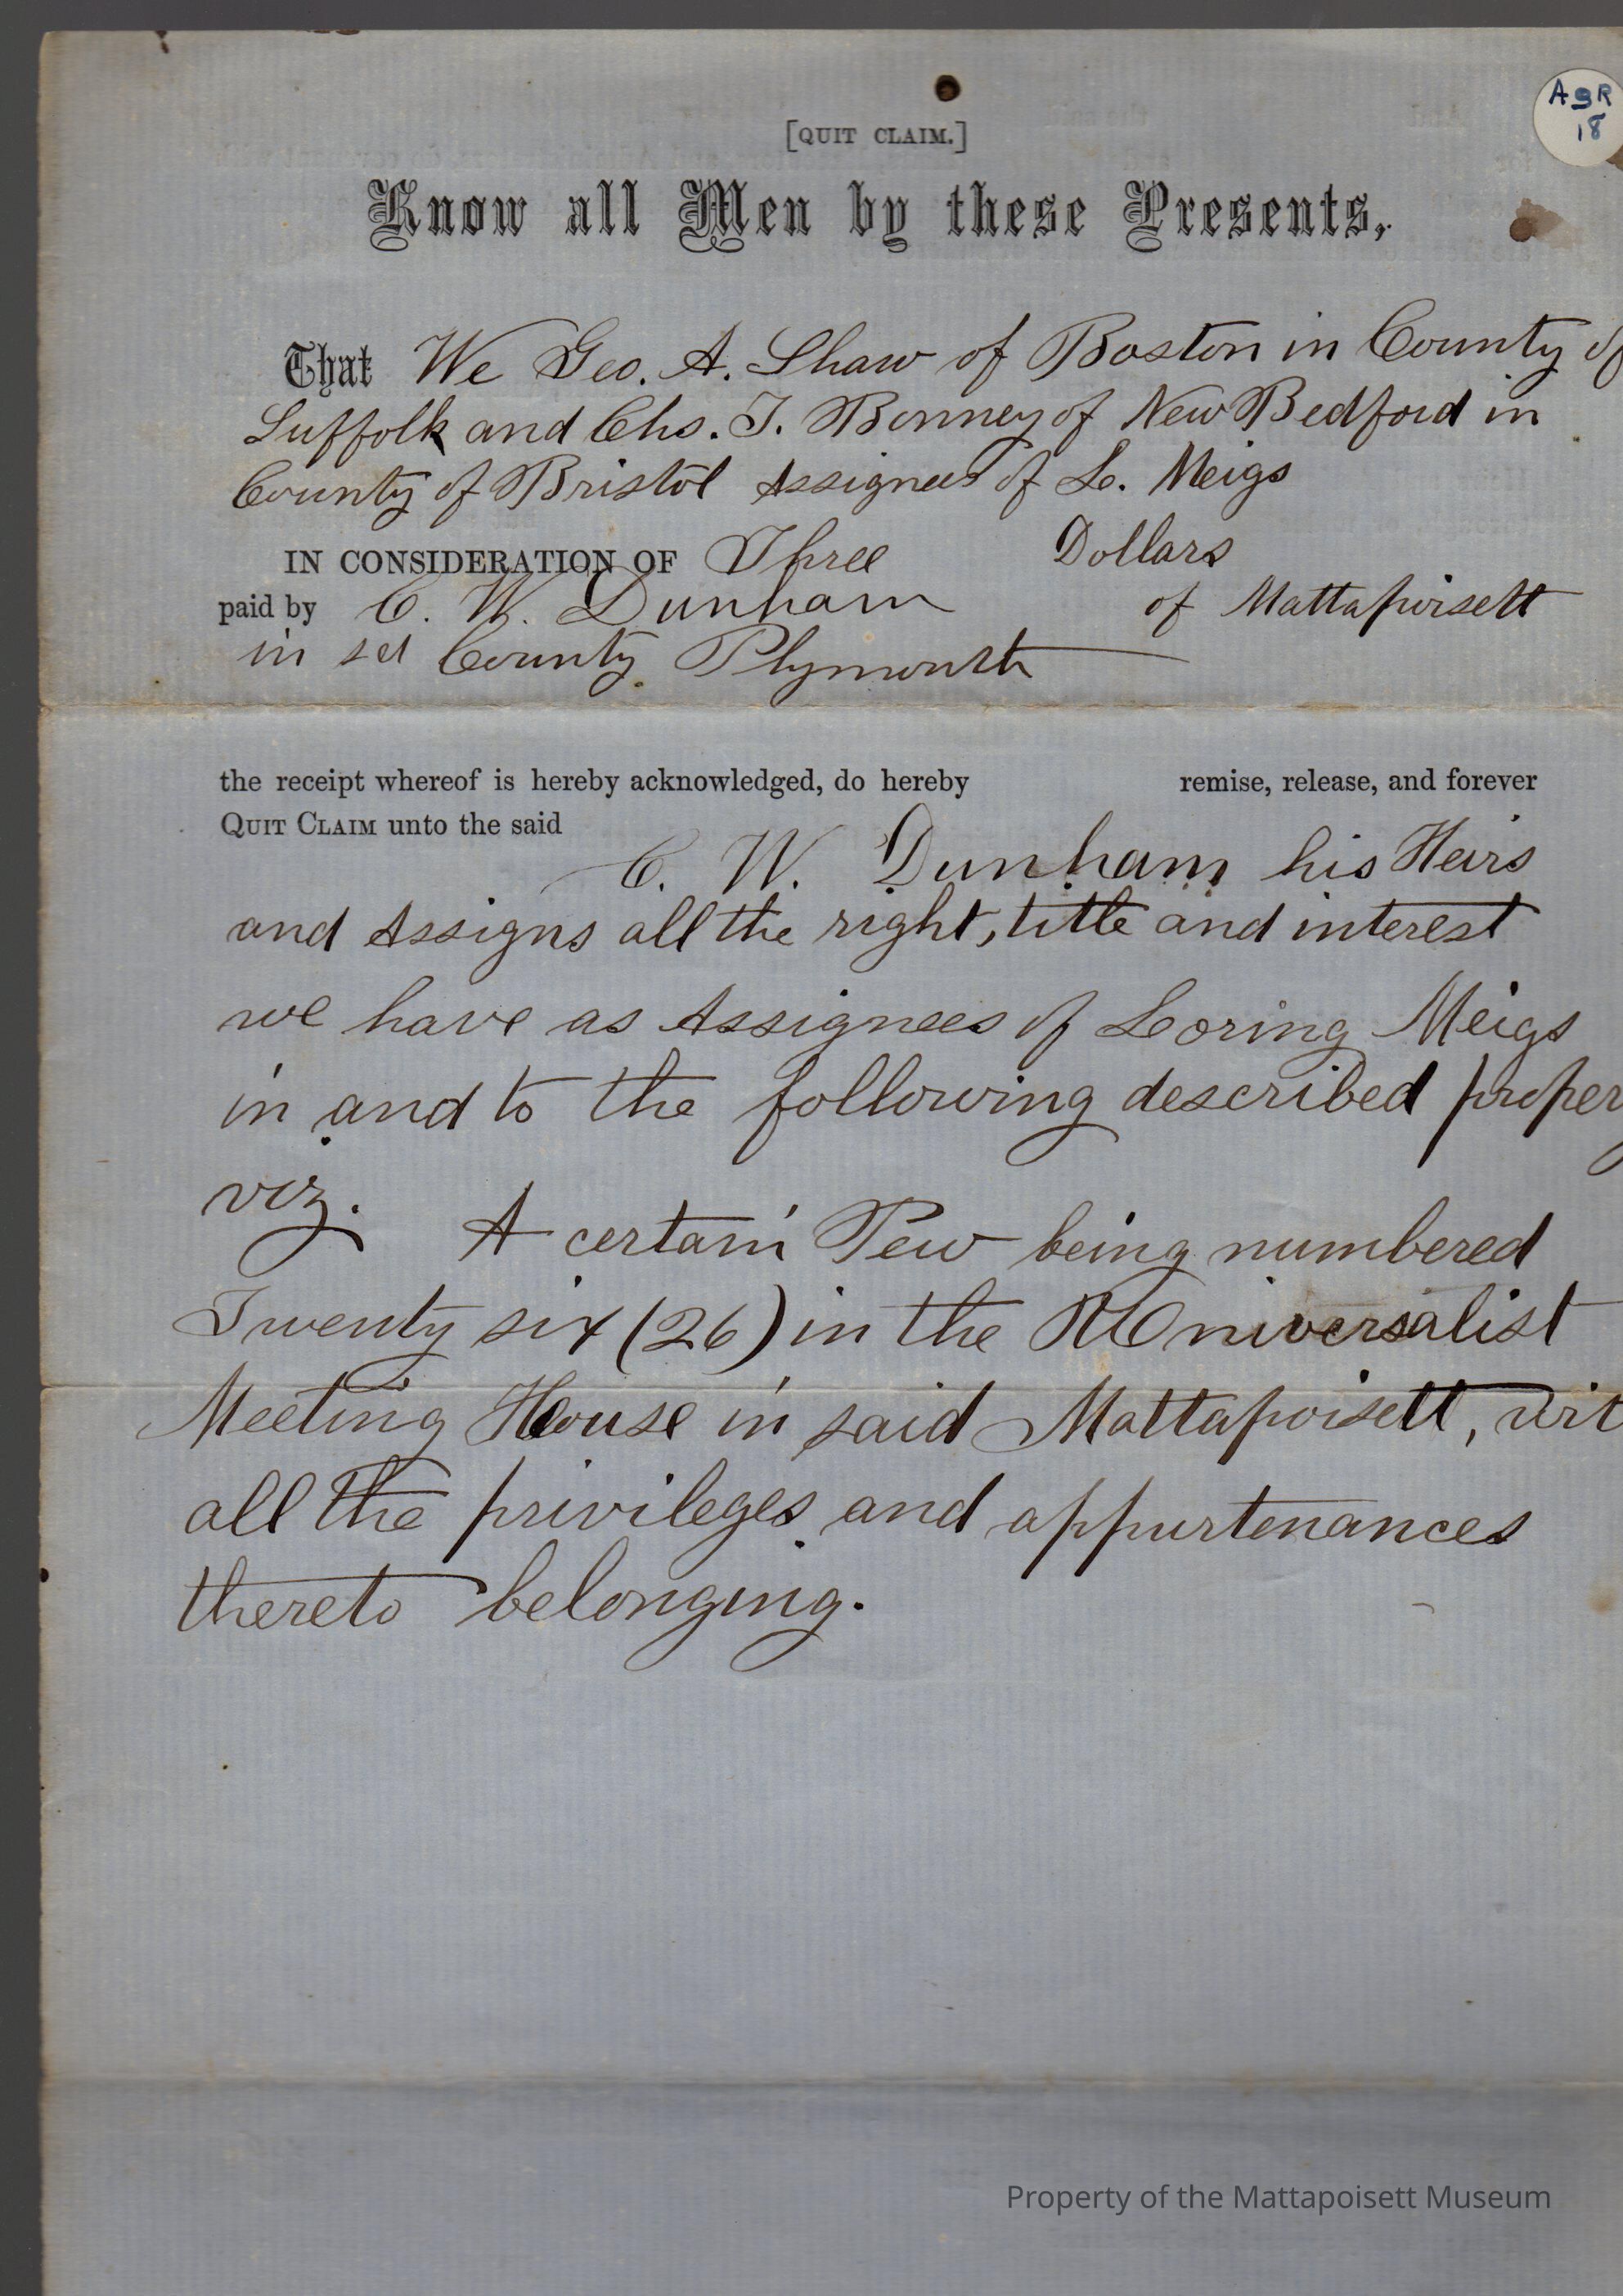 A9R
18
[QUIT CLAIM.]
Know all Men by these Presents,
That We Geo. A. Shaw of Boston in County of
Suffolk and Chs. T. Bonney of New Bedford in
County of Bristol Assignees of L. Meigs
IN CONSIDERATION OF Three Dollars
paid by C. W. Dunham of Mattapoisett
in sd County Plymouth
the receipt whereof is hereby acknowledged, do hereby remise, release, and forever
QUIT CLAIM unto the said
C. W. Dunham his Heirs
and Assigns all the right, title and interest
we have as Assignees of Loring Meigs
in and to the following described proper
viz.
A certain Pew being numbered
Twenty six (26) in the Universalist
Meeting House in said Mattapoisett, wit
all the privileges and appurtenances
thereto belonging.
Property of the Mattapoisett Museum